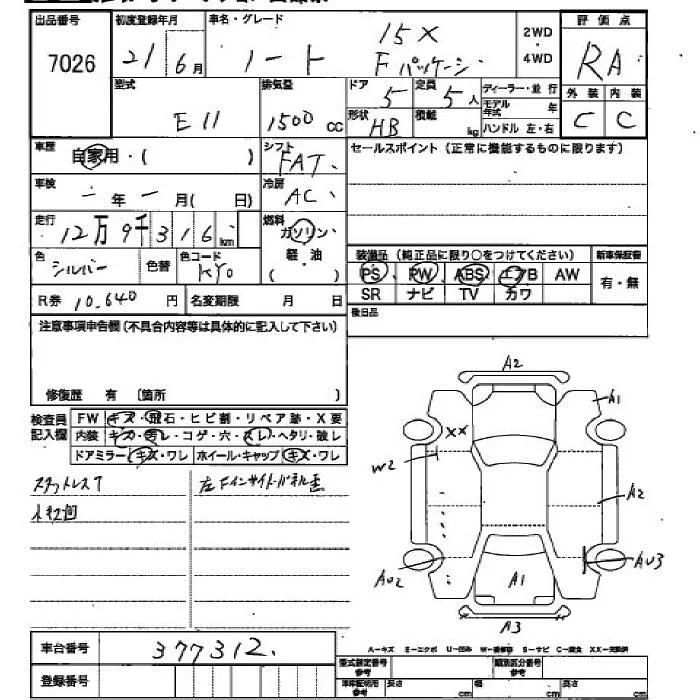 出品番号 初度登録年月 車名・グレード 評価点
7026 21 6月 ノート 15X Fパッケージ 2WD・4WD RA
型式 排気量 ドア 定員 ディーラー・並行 外装 内装
E11 1500cc 5 5人 モデル年式 年 C C
形状 HB 積載 kg ハンドル 左・右
車歴 自家用・( ) シフト FAT セールスポイント(正常に機能するものに限ります)
車検 ー年ー月(日) 冷房 AC
走行 12万9千316km 燃料 ガソリン・軽油( )
色 シルバー 色替 色コード KY0 装備品(純正品に限り○をつけてください) 新車保証書
PS PW ABS エアB AW 有・無
SR ナビ TV カワ
R券 10,640円 名変期限 月 日 後日品
注意事項申告欄(不具合内容等は具体的に記入して下さい)
修復歴 有 [箇所 ]
検査員記入欄 FW キズ・飛石・ヒビ割・リペア跡・X要
内装 キズ・汚レ・コゲ・穴・スレ・ヘタリ・破レ
ドアミラー キズ・ワレ ホイール・キャップ キズ・ワレ
スタットレスT 左Fインサイトパネル歪
A2
A1
XX
W2
A2
AU2
AU3
A1
A3
車台番号 377312
A-キズ E-エクボ U-凹み W-補修跡 S-サビ C-腐食 XX-交換済
登録番号
型式指定番号 参考 類別区分番号 参考
車庫証明用 参考 長さ cm 幅 cm 高さ cm